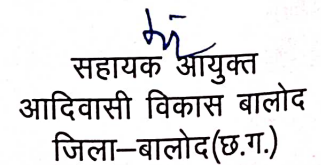 सहायक आयुक्त
आदिवासी विकास बालोद
जिला–बालोद(छ.ग.)